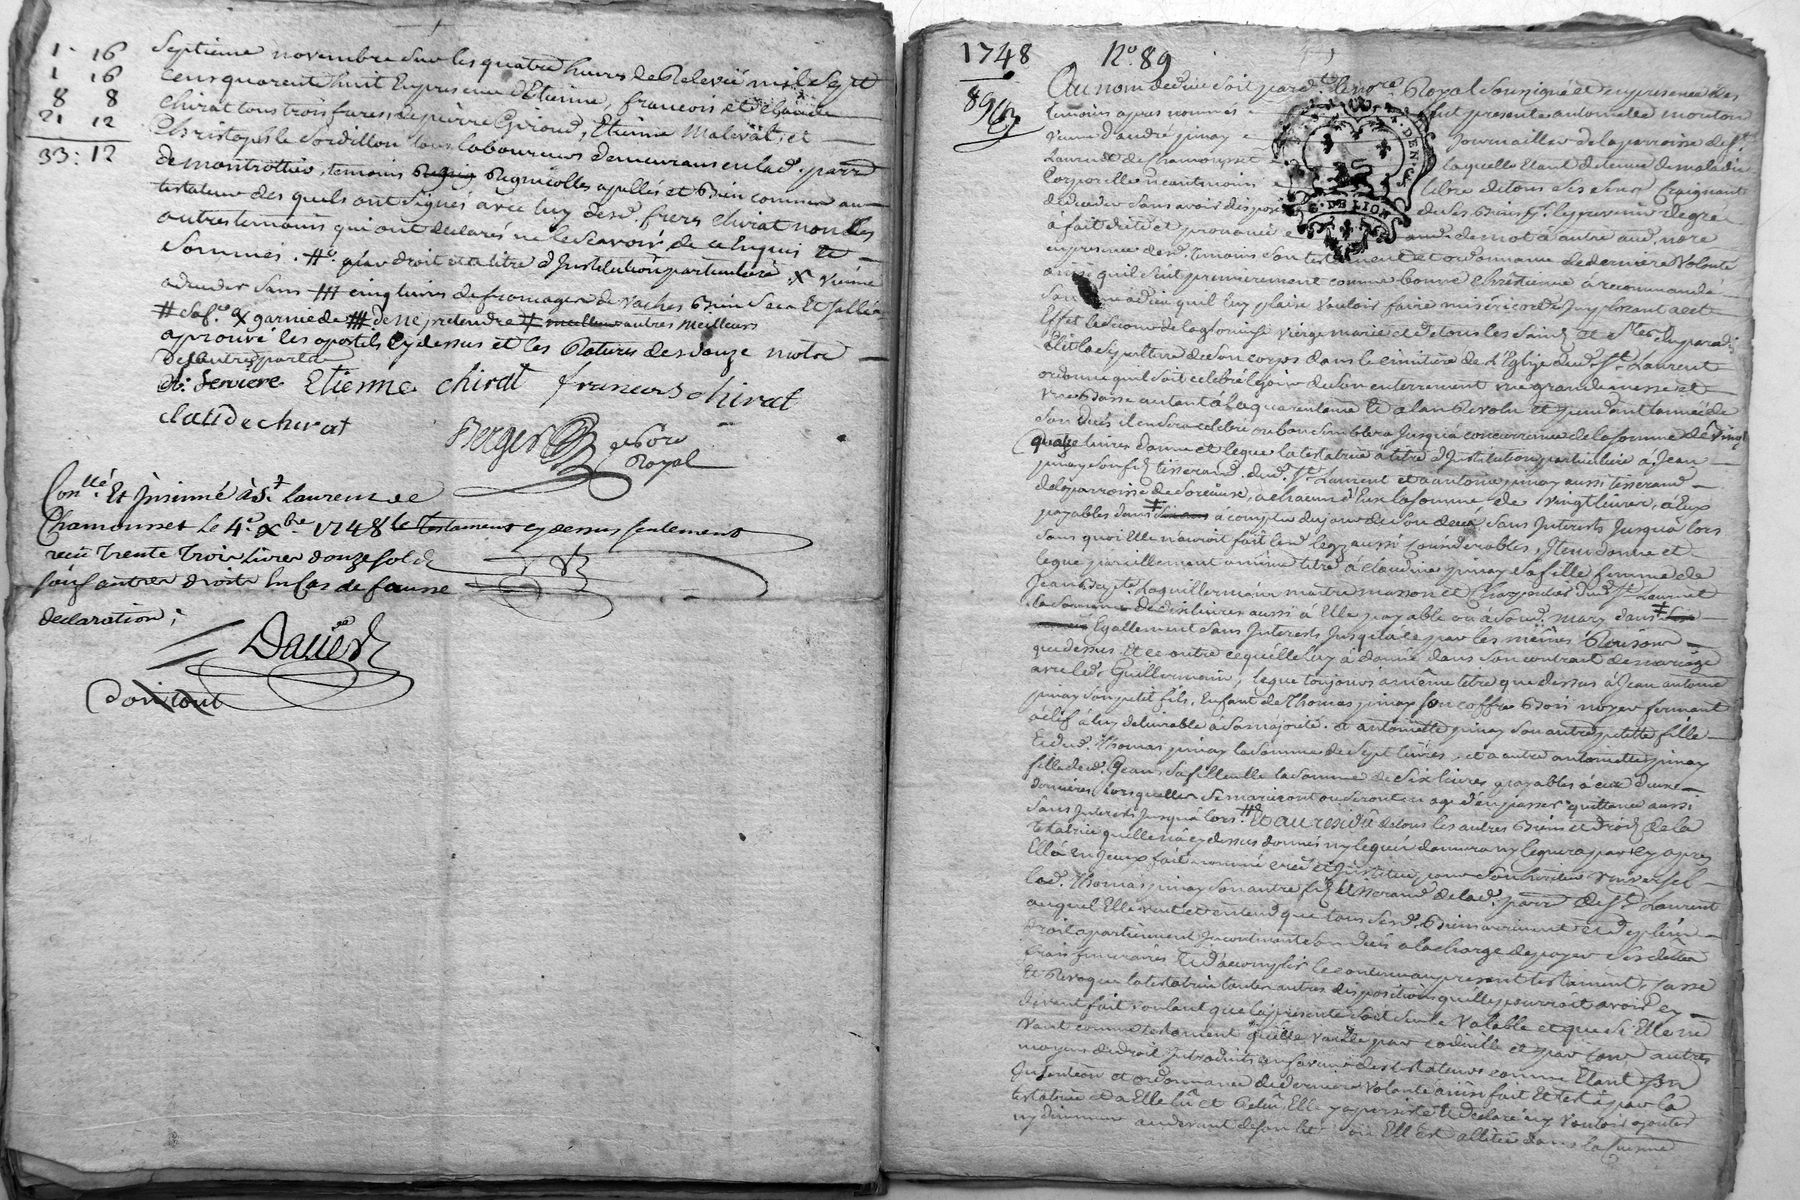 1 · 16
1 16
8 8
21 12
33 : 12
Septieme novembre sur les quatre heures de Relevée mil Sept
Cens quarente huit En presence d'Etienne, francois et Claude
Chirat tous trois freres, de pierre Giroud, Etienne Malaval, et
Christophle Sordillon tous laboureurs demeurans en lad. parr.
de montrottier, temoins Regnicolles apellés et Bien connus au
testateur desquels ont signés avec luy lesd. freres Chirat non les
autres temoins qui ont declarés ne le Scavoir de ce Enquis et
Sommés. # pour droit et a titre d'Institution particuliere x
cinq livres de fromages de vaches Bien Sec Et Sallé
garnie de de ne pretendre autres meilleurs
aprouvé les apostils cy dessus et les Ratures de douze mots
Serviere Etienne chirat francois chirat
claude chirat
Berger no.re Royal
Con.llé Et Insinué à S.t Laurent de
Chamousset le 4.e Xbre 1748 le testament cy dessus seulement
reçu trente trois livres douze sols
sauf autres droits En Cas de fausse
declaration;
Davier
1748 N.o 89
89
Au nom de dieu soit par d.t le no.re Royal Soussigné et en presence des
temoins apres nommés fut presente antoinette mouton
veuve d'andré pinay journallier de la parroisse de S.t
Laurent de chamousset laquelle Etant detenue de maladie
Corporelle neantmoins libre de tous ses sens Craignant
de deceder sans avoir disposé de ses Biens
G. DE LION
à fait dicté et prononcé de mot à autre aud. no.re
en presence desd. temoins Son testament et ordonnance de derniere Volonté
ainsi qu'il suit premierement comme bonne chrestienne a recommandé
Son ame a dieu qu'il luy plaise vouloir faire misericorde Implorant a cet
Effet le secours de la glorieuse vierge marie et de tous les Saints et S.tes du paradis
Elit la Sepulture de Son corps dans le cimetiere de L'Eglise dud. S.t Laurent
ordonne qu'il soit celebré le jour de Son enterrement une grande messe et
une Basse autant à la quarentaine Et a l'an Revolu et pendant l'année de
Son deces il en sera celebré ou bon semblera Jusqu'à concurrence de la somme de vingt
quatre livres donne et legue la testatrice a titre d'Institution particuliere a Jean
pinay Son fils tisserand dud. S.t Laurent et a antoine pinay aussi tisserand
de la parroisse de à chacun d'Eux la somme de vingt livres, à Eux
payables dans à compter du jour de Son decés Sans Interests Jusqu'à lors
Sans quoi Elle n'auroit fait lesd. legs aussi Considerables, Item donne et
legue pareillement a même titre à Claudine pinay Sa fille femme de
Jean Guillermain maitre masson et Charpentier dud. S.t Laurent
la Somme de dix livres aussi à Elle payable ou à Sond. mary dans
Egallement Sans Interests Jusqu'a ce par les mêmes Raisons
que dessus. Et ce outre ce qu'elle luy à donné dans Son contract de mariage
avec led. Guillermain, legue toujours a même titre que dessus à Jean antoine
pinay Son petit fils, Enfant de Thomas pinay Son coffre Bois noyer fermant
à clef à luy delivrable à Sa majorité. à antoinette pinay Son autre petitte fille
Et dud. Thomas pinay la Somme de Sept livres, et a autre antoinette pinay
fille dud. Jean Sa filleulle la Somme de Six livres payables à ces deux
dernieres lorsquelles Se marieront ou Seront en age d'en passer quittance aussi
Sans Interests Jusqu'à lors. Et au residu de tous les autres Biens et droits de la
testatrice quelle n'a cy dessus donnés ny legués donnera ny leguera par cy apres
Ella En Iceux fait nommé créé et Institué pour Son heritier universel
led. Thomas pinay Son autre fils tisserand de lad. parr. de S.t Laurent
auquel Elle veut et entend que tous Sesd. Biens arrivent et de plein
droit apartiennent Incontinent Son deces a la charge de payer Ses dettes
frais funeraires Et d'accomplir le contenu au present testament, Casse
Et Revoque la testatrice toutes autres dispositions quelle pourroit avoir cy
devant fait voulant que la presente Soit Seule Valable et que Si Elle ne
vaut comme testament quelle vaille par codicille et par tous autres
moyens de droit Introduits en faveur des testateurs comme Etant Son
Intention et ordonnance de derniere Volonté ainsi fait Et testé par la
testatrice Et a Elle lû et Relû, Elle y a persisté Et declaré n'y vouloir ajouter
ny diminuer au devant de Son lit ou Ell'est allitée dans la cuisine